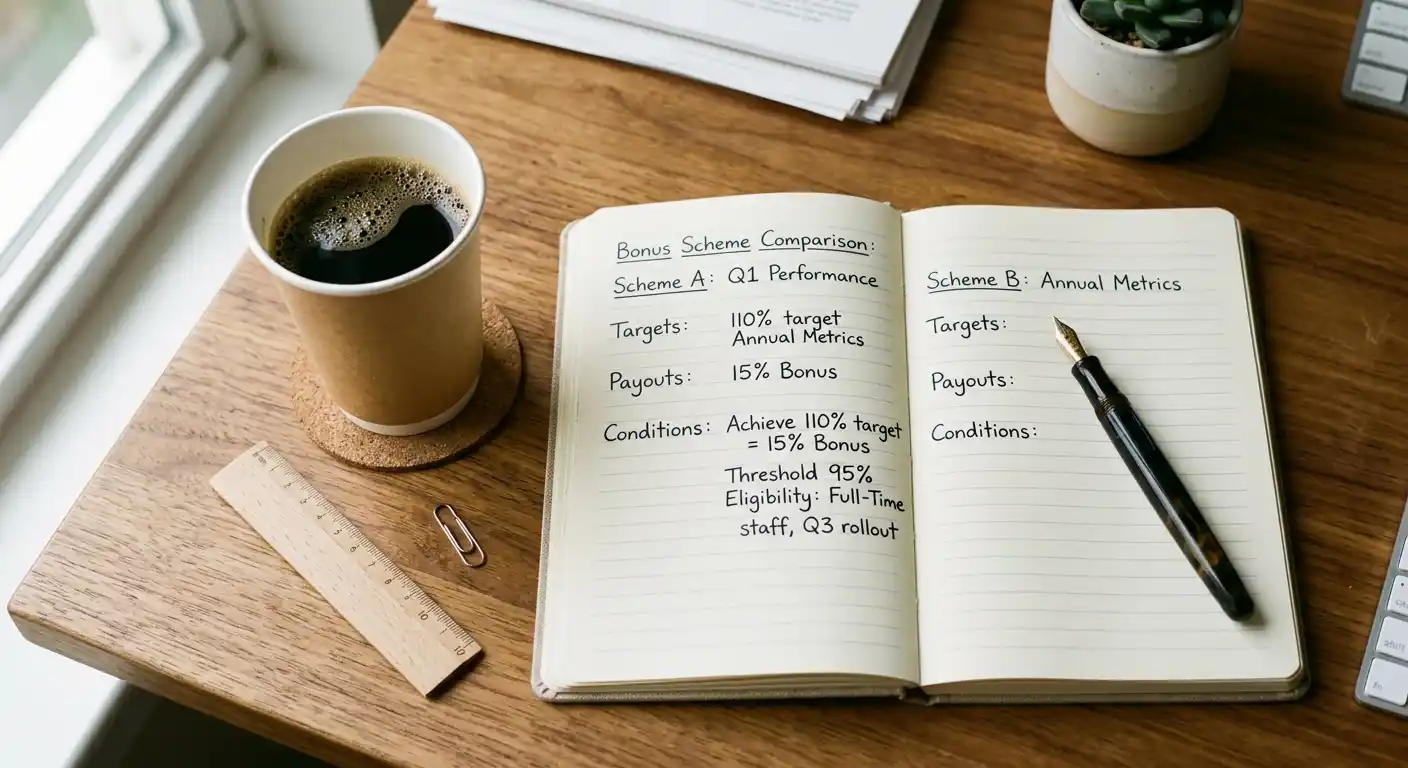 Bonus Scheme Comparison:
Scheme A: Q1 Performance
Targets: 110% target
Annual Metrics
Payouts: 15% Bonus
Conditions: Achieve 110% target
= 15% Bonus
Threshold 95%
Eligibility: Full-Time
staff, Q3 rollout
Scheme B: Annual Metrics
Targets:
Payouts:
Conditions: